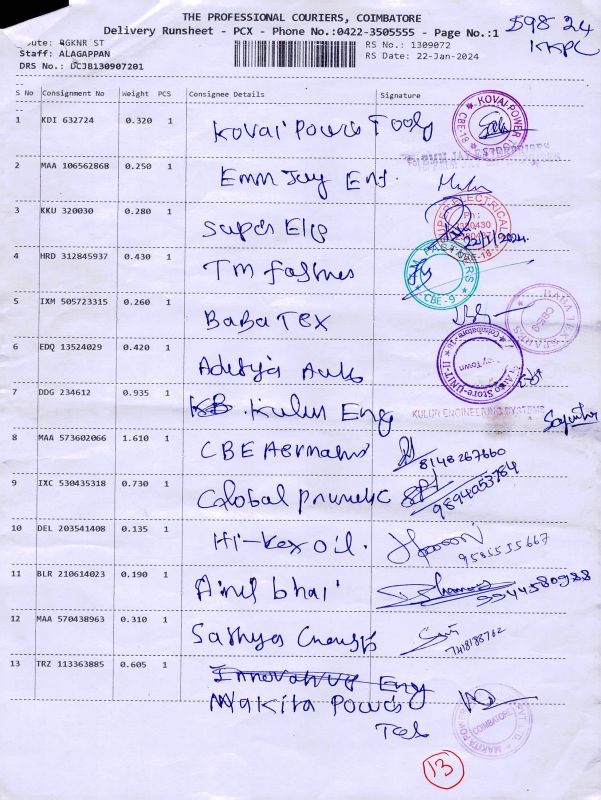 THE PROFESSIONAL COURIERS, COIMBATORE
Delivery Runsheet - PCX - Phone No.:0422-3505555 - Page No.:1
598 24
KKPC
Route: RGKNR ST
RS No.: 1309072
Staff: ALAGAPPAN
RS Date: 22-Jan-2024
DRS No.: DCJB130907201
S No Consignment No Weight PCS Consignee Details Signature
1 KDI 632724 0.320 1 Kovai Power Tools
KOVAI POWER
CBE-18
2 MAA 106562868 0.250 1 Emm Jay Eng.
3 KKU 320030 0.280 1 Super Ele
SUPER ELECTRICAL
Ph:
22/1/2024.
CBE-18
4 HRD 312845937 0.430 1 TM fastnes
CBE-9
5 IXM 505723315 0.260 1 BaBa Tex
BABA TEX
6 EDQ 13524029 0.420 1 Aditya Auto
Store-UNIT-II
Coimbatore-18
7 DDG 234612 0.935 1 KB. Kulur Eng
KULUR ENGINEERING SYSTEMS
8 MAA 573602066 1.610 1 CBE Aermatics
8148267660
9 IXC 530435318 0.730 1 Global pnumetic
9894053784
10 DEL 203541408 0.135 1 Hi-Rex oil.
9585555667
11 BLR 210614023 0.190 1 Anil bhai
9944580988
12 MAA 570438963 0.310 1 Sathya
7418188762
13 TRZ 113363885 0.605 1 Innovative Eng
Makita Power
Tools
MAKITA POWER
COIMBATORE
PVT LTD.
13